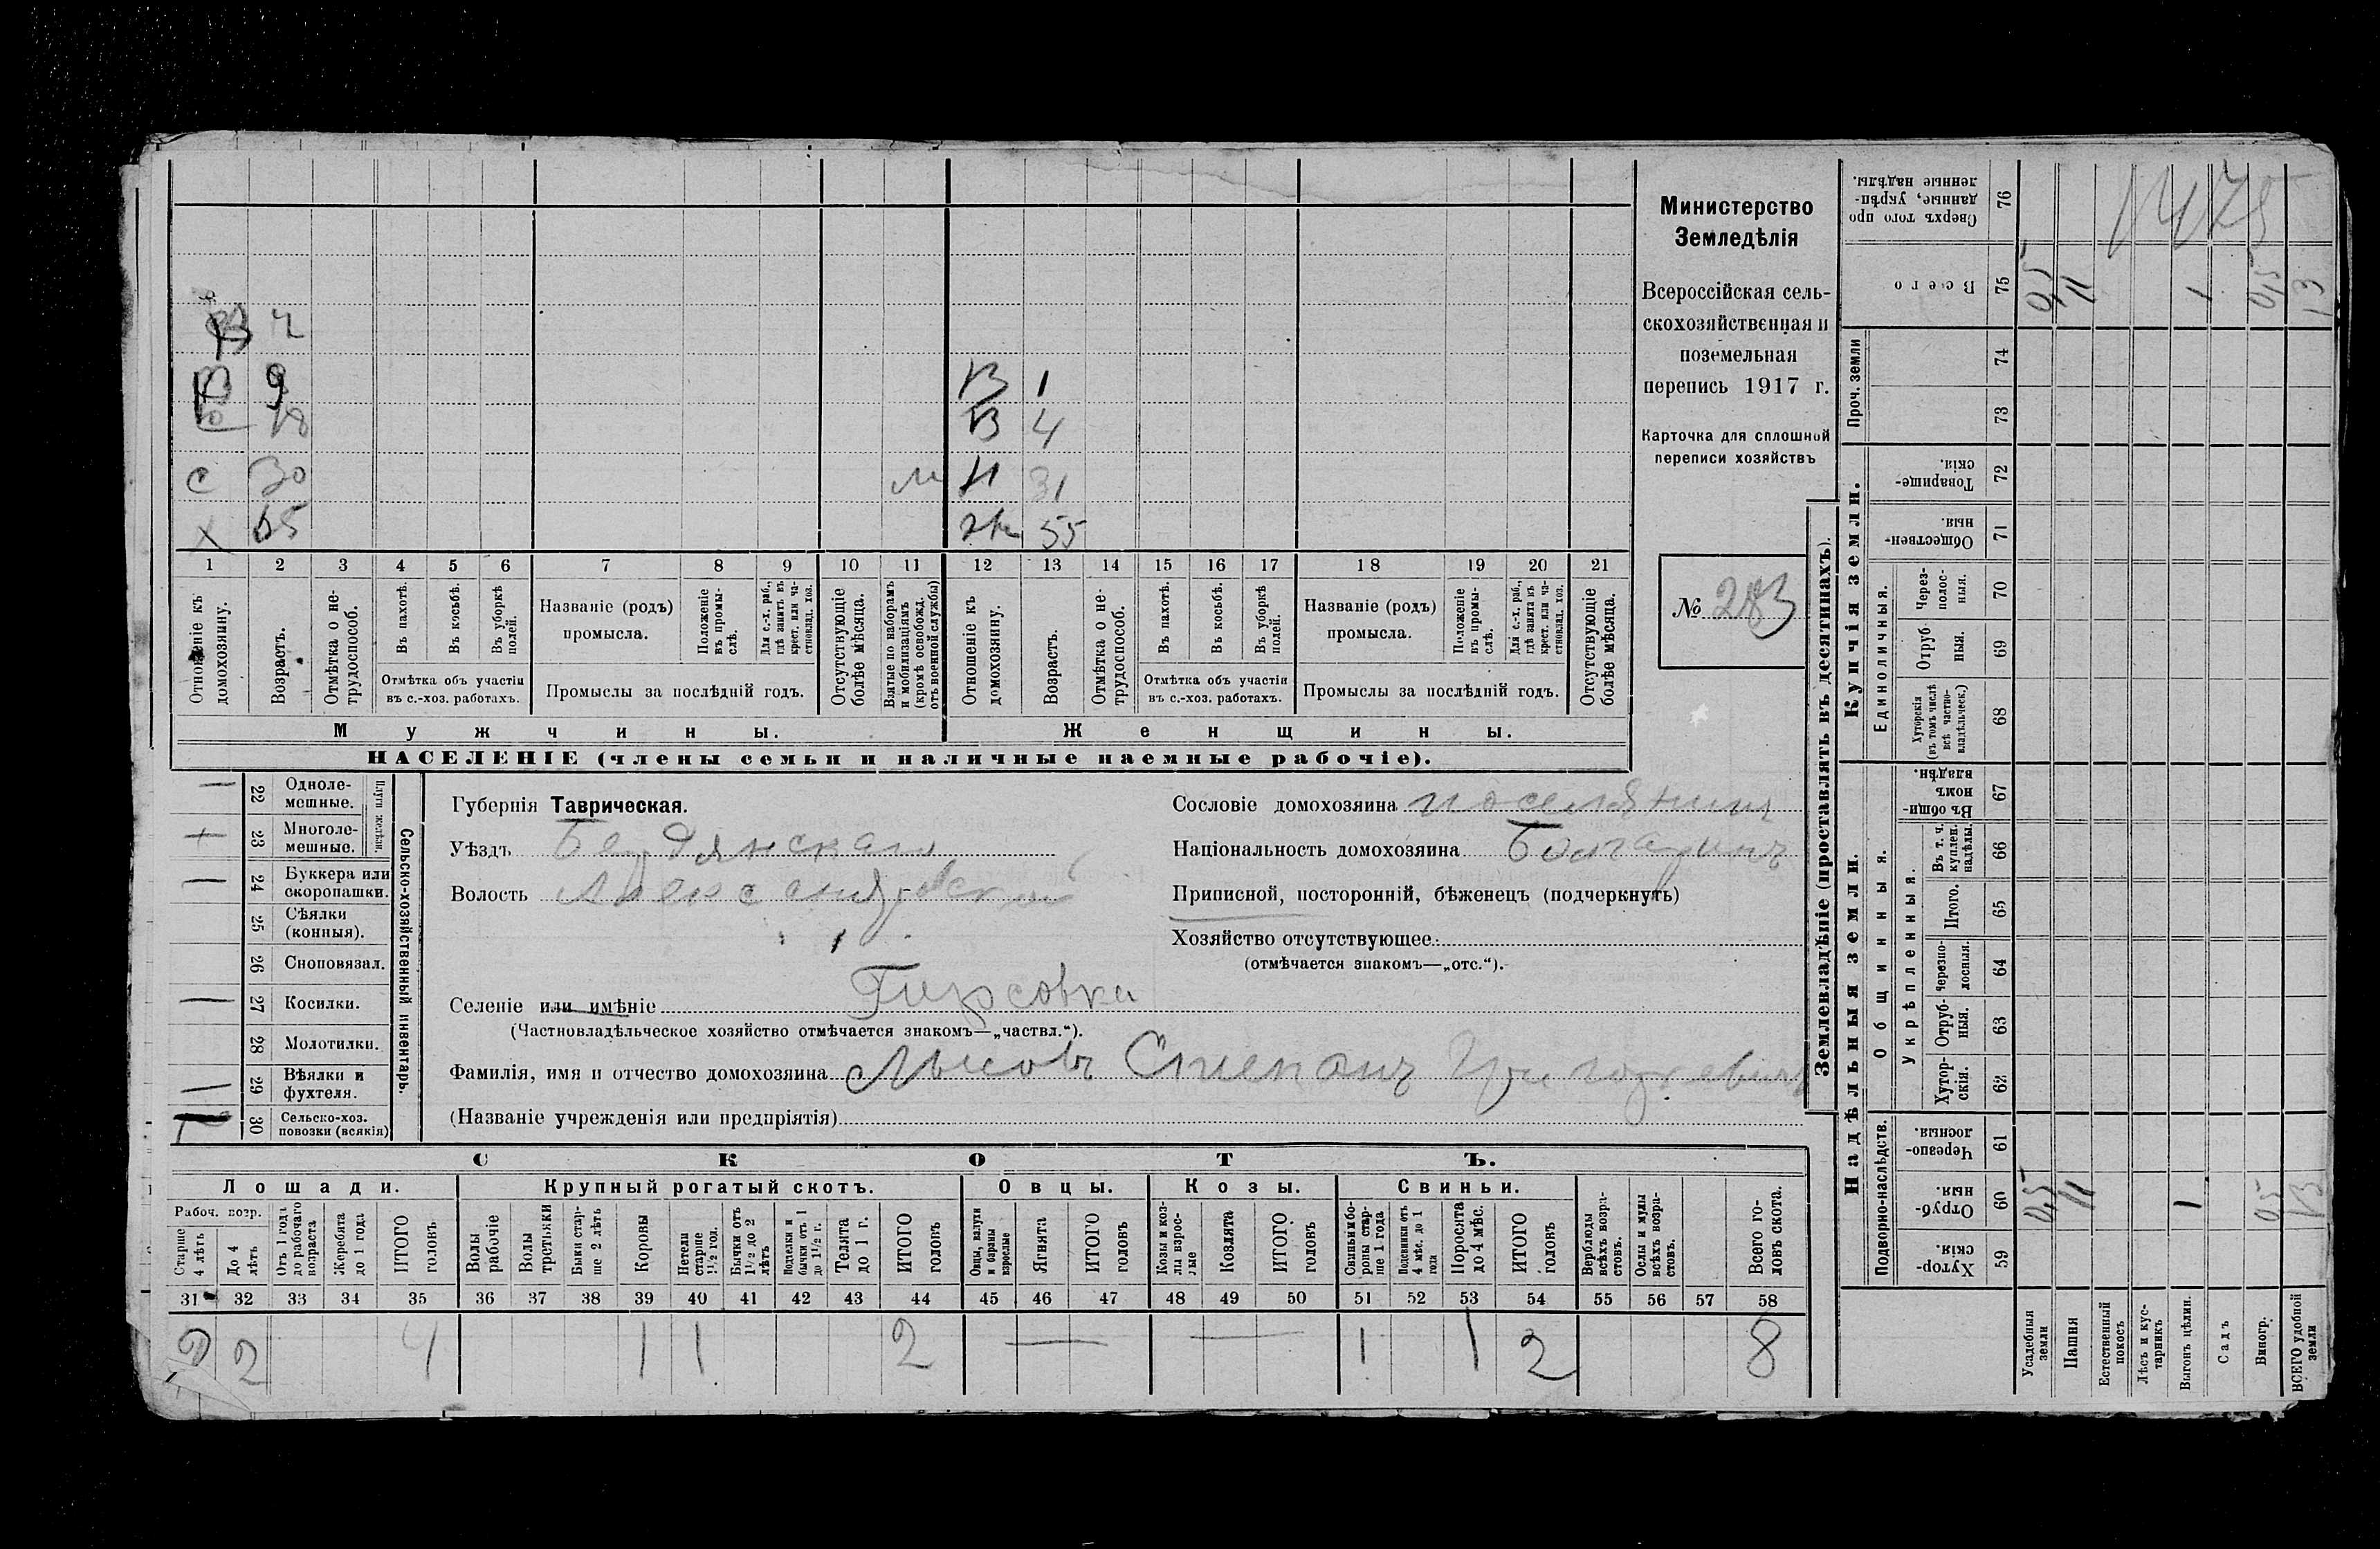 Министерство
Земледѣлія
Всероссійская сель-
скохозяйственная и
поземельная
перепись 1917 г.
Карточка для сплошной
переписи хозяйствъ
№ 283
В 2
В 9
18
С 30
Х 65
В 1
В 4
м Н 31
Ж 55
1 2 3 4 5 6 7 8 9 10 11 12 13 14 15 16 17 18 19 20 21
Отношеніе къ домохозяину.
Возрастъ.
Отмѣтка о не-трудоспособ.
Въ пахотѣ.
Въ косьбѣ.
Въ уборкѣ полей.
Отмѣтка объ участіи
въ с.-хоз. работахъ.
Названіе (родъ)
промысла.
Положеніе въ промы-слѣ.
Для с.-х. раб., гдѣ занятъ въ крест. или ча-стновлад. хоз.
Промыслы за послѣдній годъ.
Отсутствующіе болѣе мѣсяца.
Взятые по наборамъ и мобилизаціямъ (кромѣ освобожд. отъ военной службы)
Отношеніе къ домохозяину.
Возрастъ.
Отмѣтка о не-трудоспособ.
Въ пахотѣ.
Въ косьбѣ.
Въ уборкѣ полей.
Отмѣтка объ участіи
въ с.-хоз. работахъ.
Названіе (родъ)
промысла.
Положеніе въ промы-слѣ.
Для с.-х. раб., гдѣ занята въ крест. или ча-стновлад. хоз.
Промыслы за послѣдній годъ.
Отсутствующіе болѣе мѣсяца.
Мужчины.
Женщины.
НАСЕЛЕНІЕ (члены семьи и наличные наемные рабочіе).
22 Одноле-мешные.
23 Многоле-мешные.
Плуги желѣзн.
24 Буккера или скоропашки.
25 Сѣялки (конныя).
26 Сноповязал.
27 Косилки.
28 Молотилки.
29 Вѣялки и фухтеля.
30 Сельско-хоз. повозки (всякія)
Сельско-хозяйственный инвентарь.
Губернія Таврическая.
Уѣздъ Бердянскаго
Волость Александровской
Селеніе или имѣніе Гирсовка
(Частновладѣльческое хозяйство отмѣчается знакомъ—„частвл.“).
Фамилія, имя и отчество домохозяина Лысовъ Степанъ Григорьевичъ
(Названіе учрежденія или предпріятія)
Сословіе домохозяина поселянинъ
Національность домохозяина Болгаринъ
Приписной, посторонній, бѣженецъ (подчеркнуть)
Хозяйство отсутствующее
(отмѣчается знакомъ—„отс.“).
СКОТЪ.
Лошади. Крупный рогатый скотъ. Овцы. Козы. Свиньи.
Рабоч. возр.
Старше 4 лѣтъ
До 4 лѣтъ
Отъ 1 года до рабочаго возраста
Жеребята до 1 года
ИТОГО головъ
Волы рабочіе
Волы третьяки
Быки стар-ше 2 лѣтъ
Коровы
Нетели старше 1½ год.
Бычки отъ 1½ до 2 лѣтъ
Подтелки и бычки отъ 1 до 1½ г.
Телята до 1 г.
ИТОГО головъ
Овцы, валухи и бараны взрослые
Ягнята
ИТОГО головъ
Козы и коз-лы взрос-лые
Козлята
ИТОГО головъ
Свиньи и бо-ровы стар-ше 1 года
Подсвинки отъ 4 мѣс. до 1 года
Поросята до 4 мѣс.
ИТОГО головъ
Верблюды всѣхъ возра-стовъ.
Ослы и мулы всѣхъ возра-стовъ.
Всего го-ловъ скота.
31 32 33 34 35 36 37 38 39 40 41 42 43 44 45 46 47 48 49 50 51 52 53 54 55 56 57 58
2 2 4 1 1 2 — — 1 1 2 8
Землевладѣніе (проставлять въ десятинахъ).
Надѣльныя земли.
Купчія земли.
Подворно-наслѣдств.
Общинныя.
Укрѣпленныя.
Единоличныя.
Проч. земли
Хутор-скія. 59
Отруб-ныя. 60
Черезпо-лосныя. 61
Хутор-скія. 62
Отруб-ныя. 63
Черезпо-лосныя. 64
Итого. 65
Въ т. ч. куплен. надѣлы. 66
Въ общи-номъ владѣн. 67
Хуторскія (въ томъ числѣ всѣ частно-владѣльческ.) 68
Отруб-ныя. 69
Через-полос-ныя. 70
Обществен-ныя. 71
Товарище-скія. 72
73
74
Всего 75
Сверхъ того про-данные, укрѣп-ленные надѣлы. 76
Усадебныя земли 0,5 0,5
Пашня 11 11
Естественный покосъ
Лѣсъ и кус-тарникъ
Выгонъ цѣлин. 1 1
Садъ
Виногр. 0,5 0,5
ВСЕГО удобной земли 13 13
1475